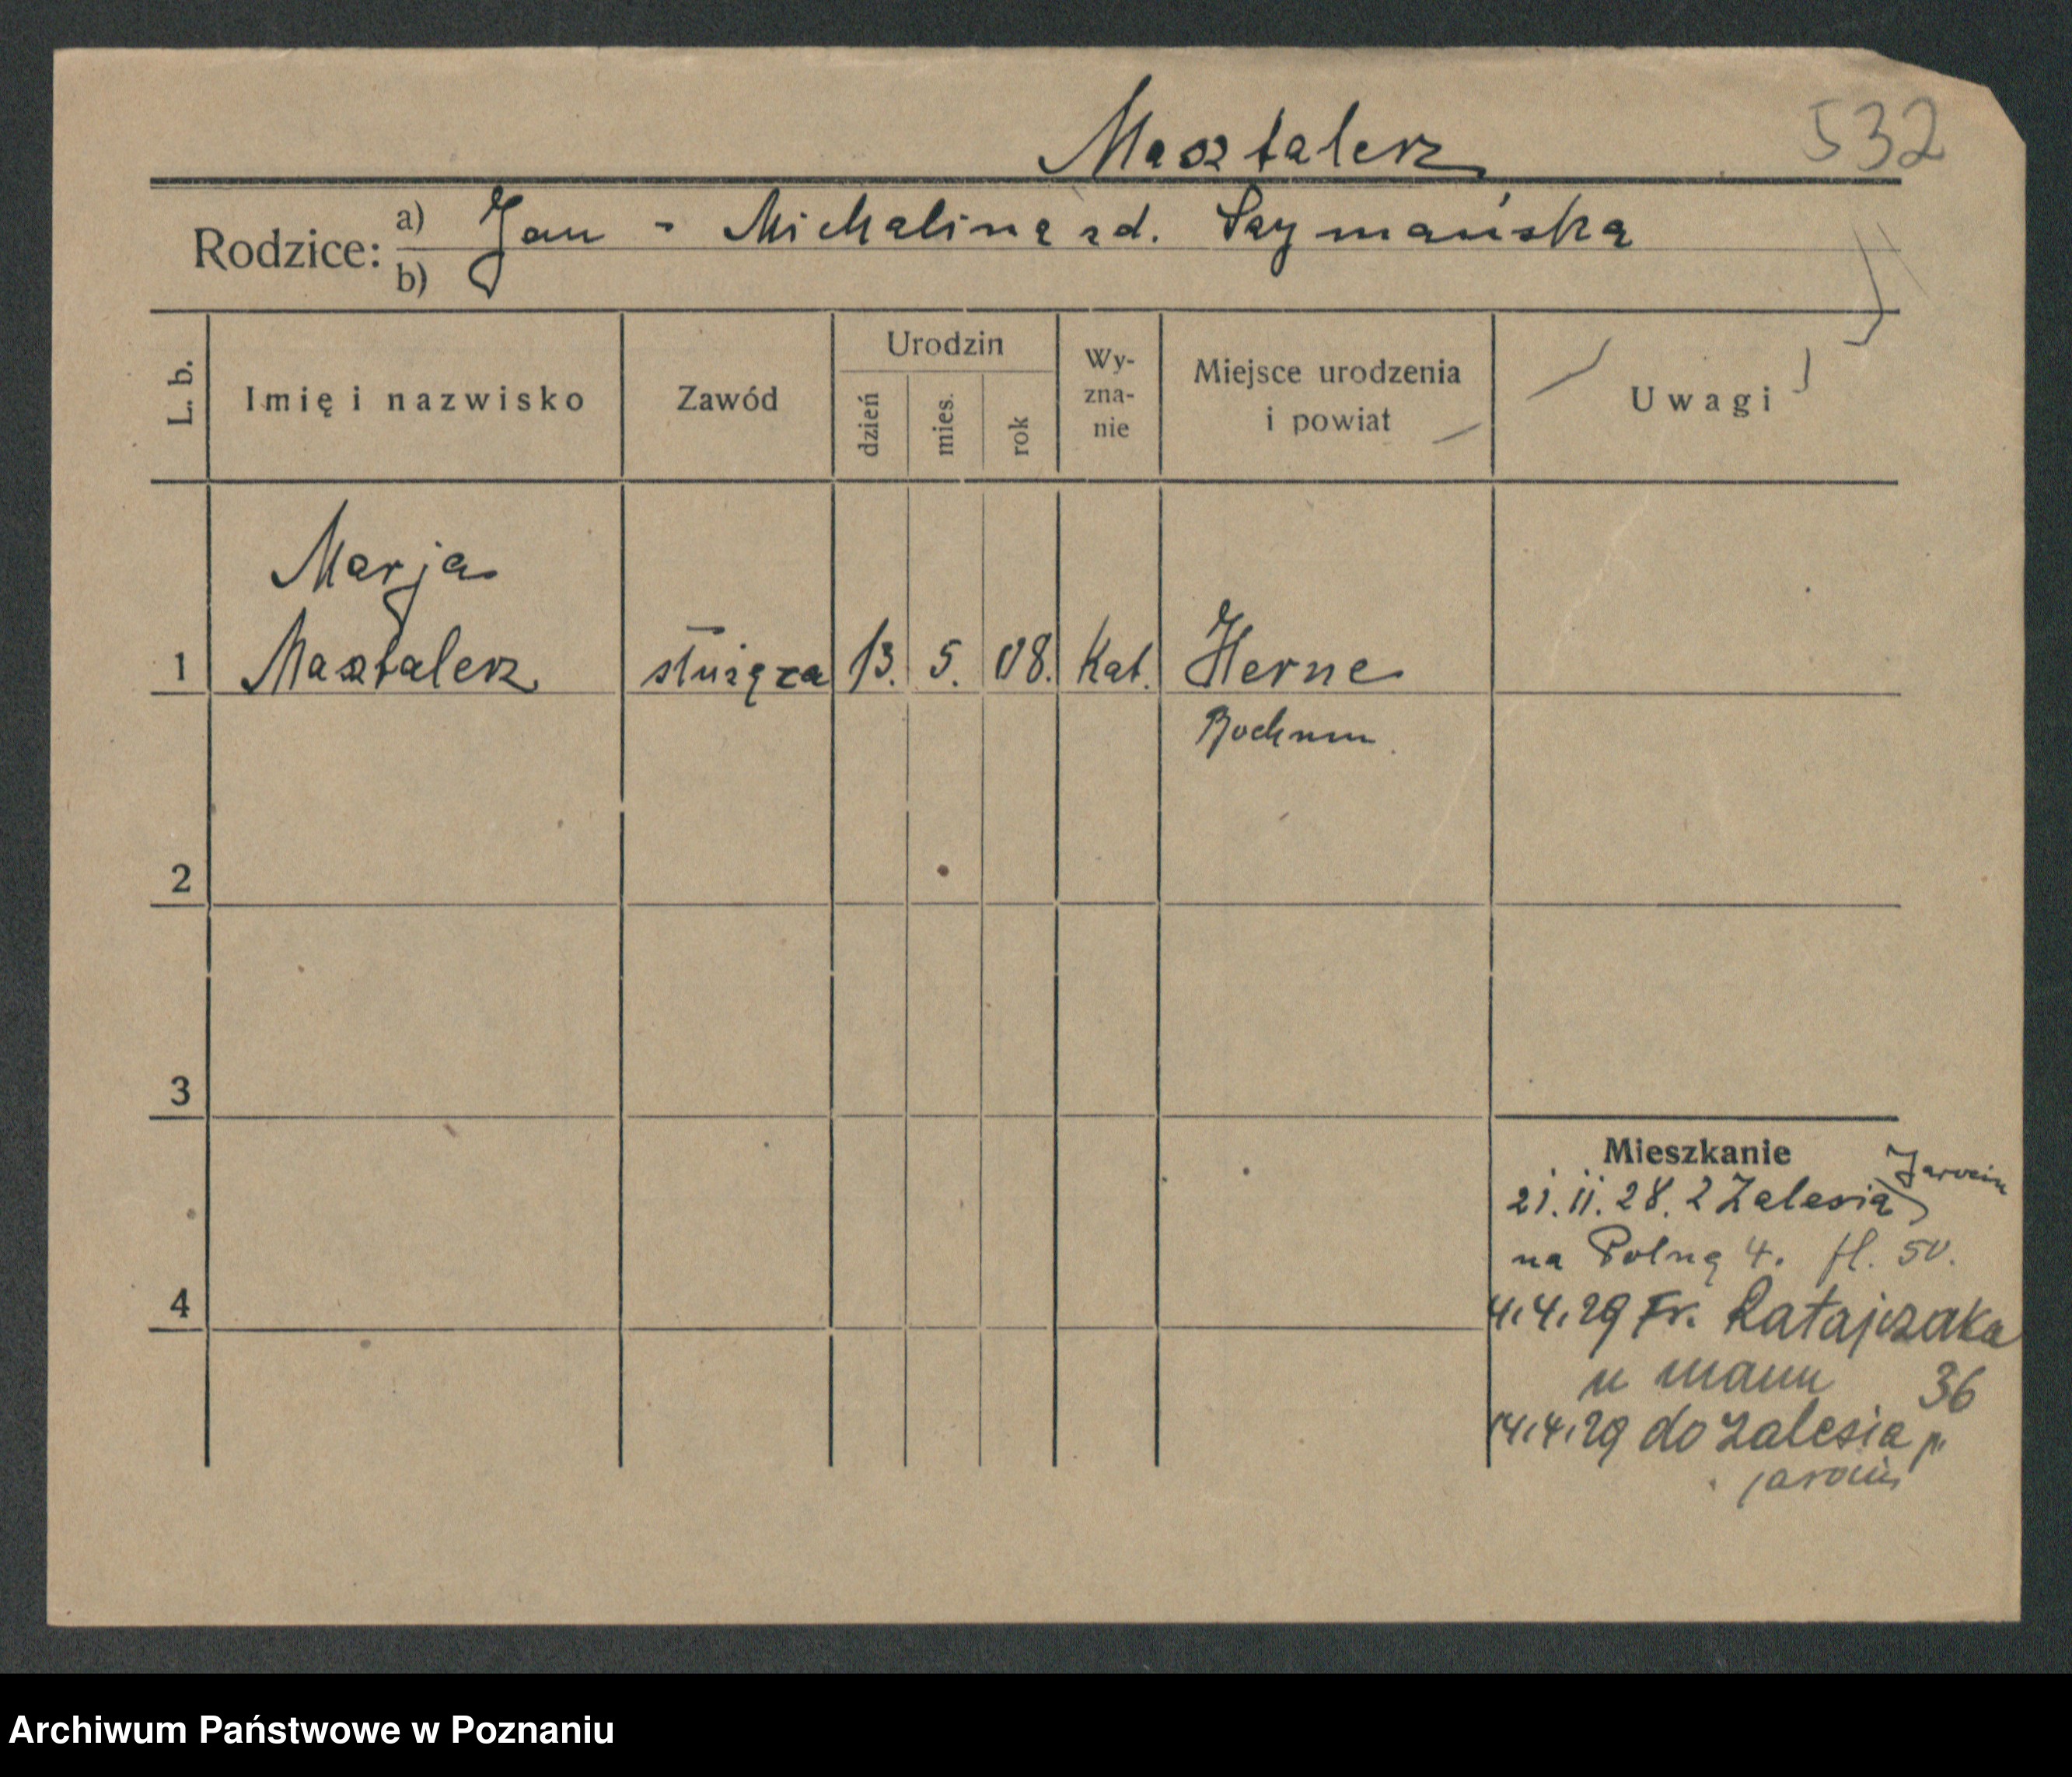 Masztalerz 532
Rodzice: a) Jan - Michalina zd. Szymańska
b)
L. b. Imię i nazwisko Zawód Urodzin dzień mies. rok Wy-zna-nie Miejsce urodzenia i powiat Uwagi
Marja
1 Masztalerz służąca 13. 5. 08. Kat. Herne
Bochum
2
3
Mieszkanie
21.11.28. z Zalesia Jarocin
na Polną 4. fl. 50.
4
4.4.29 Fr. Ratajczaka
36
14.4.29 do Zalesia p.
jarocin
Archiwum Państwowe w Poznaniu